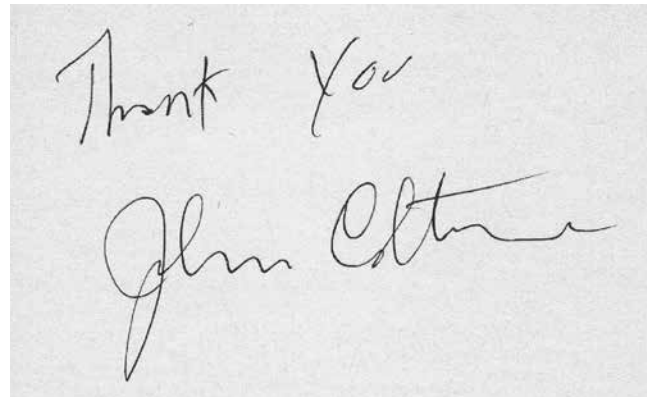 Thank You
John Coltrane